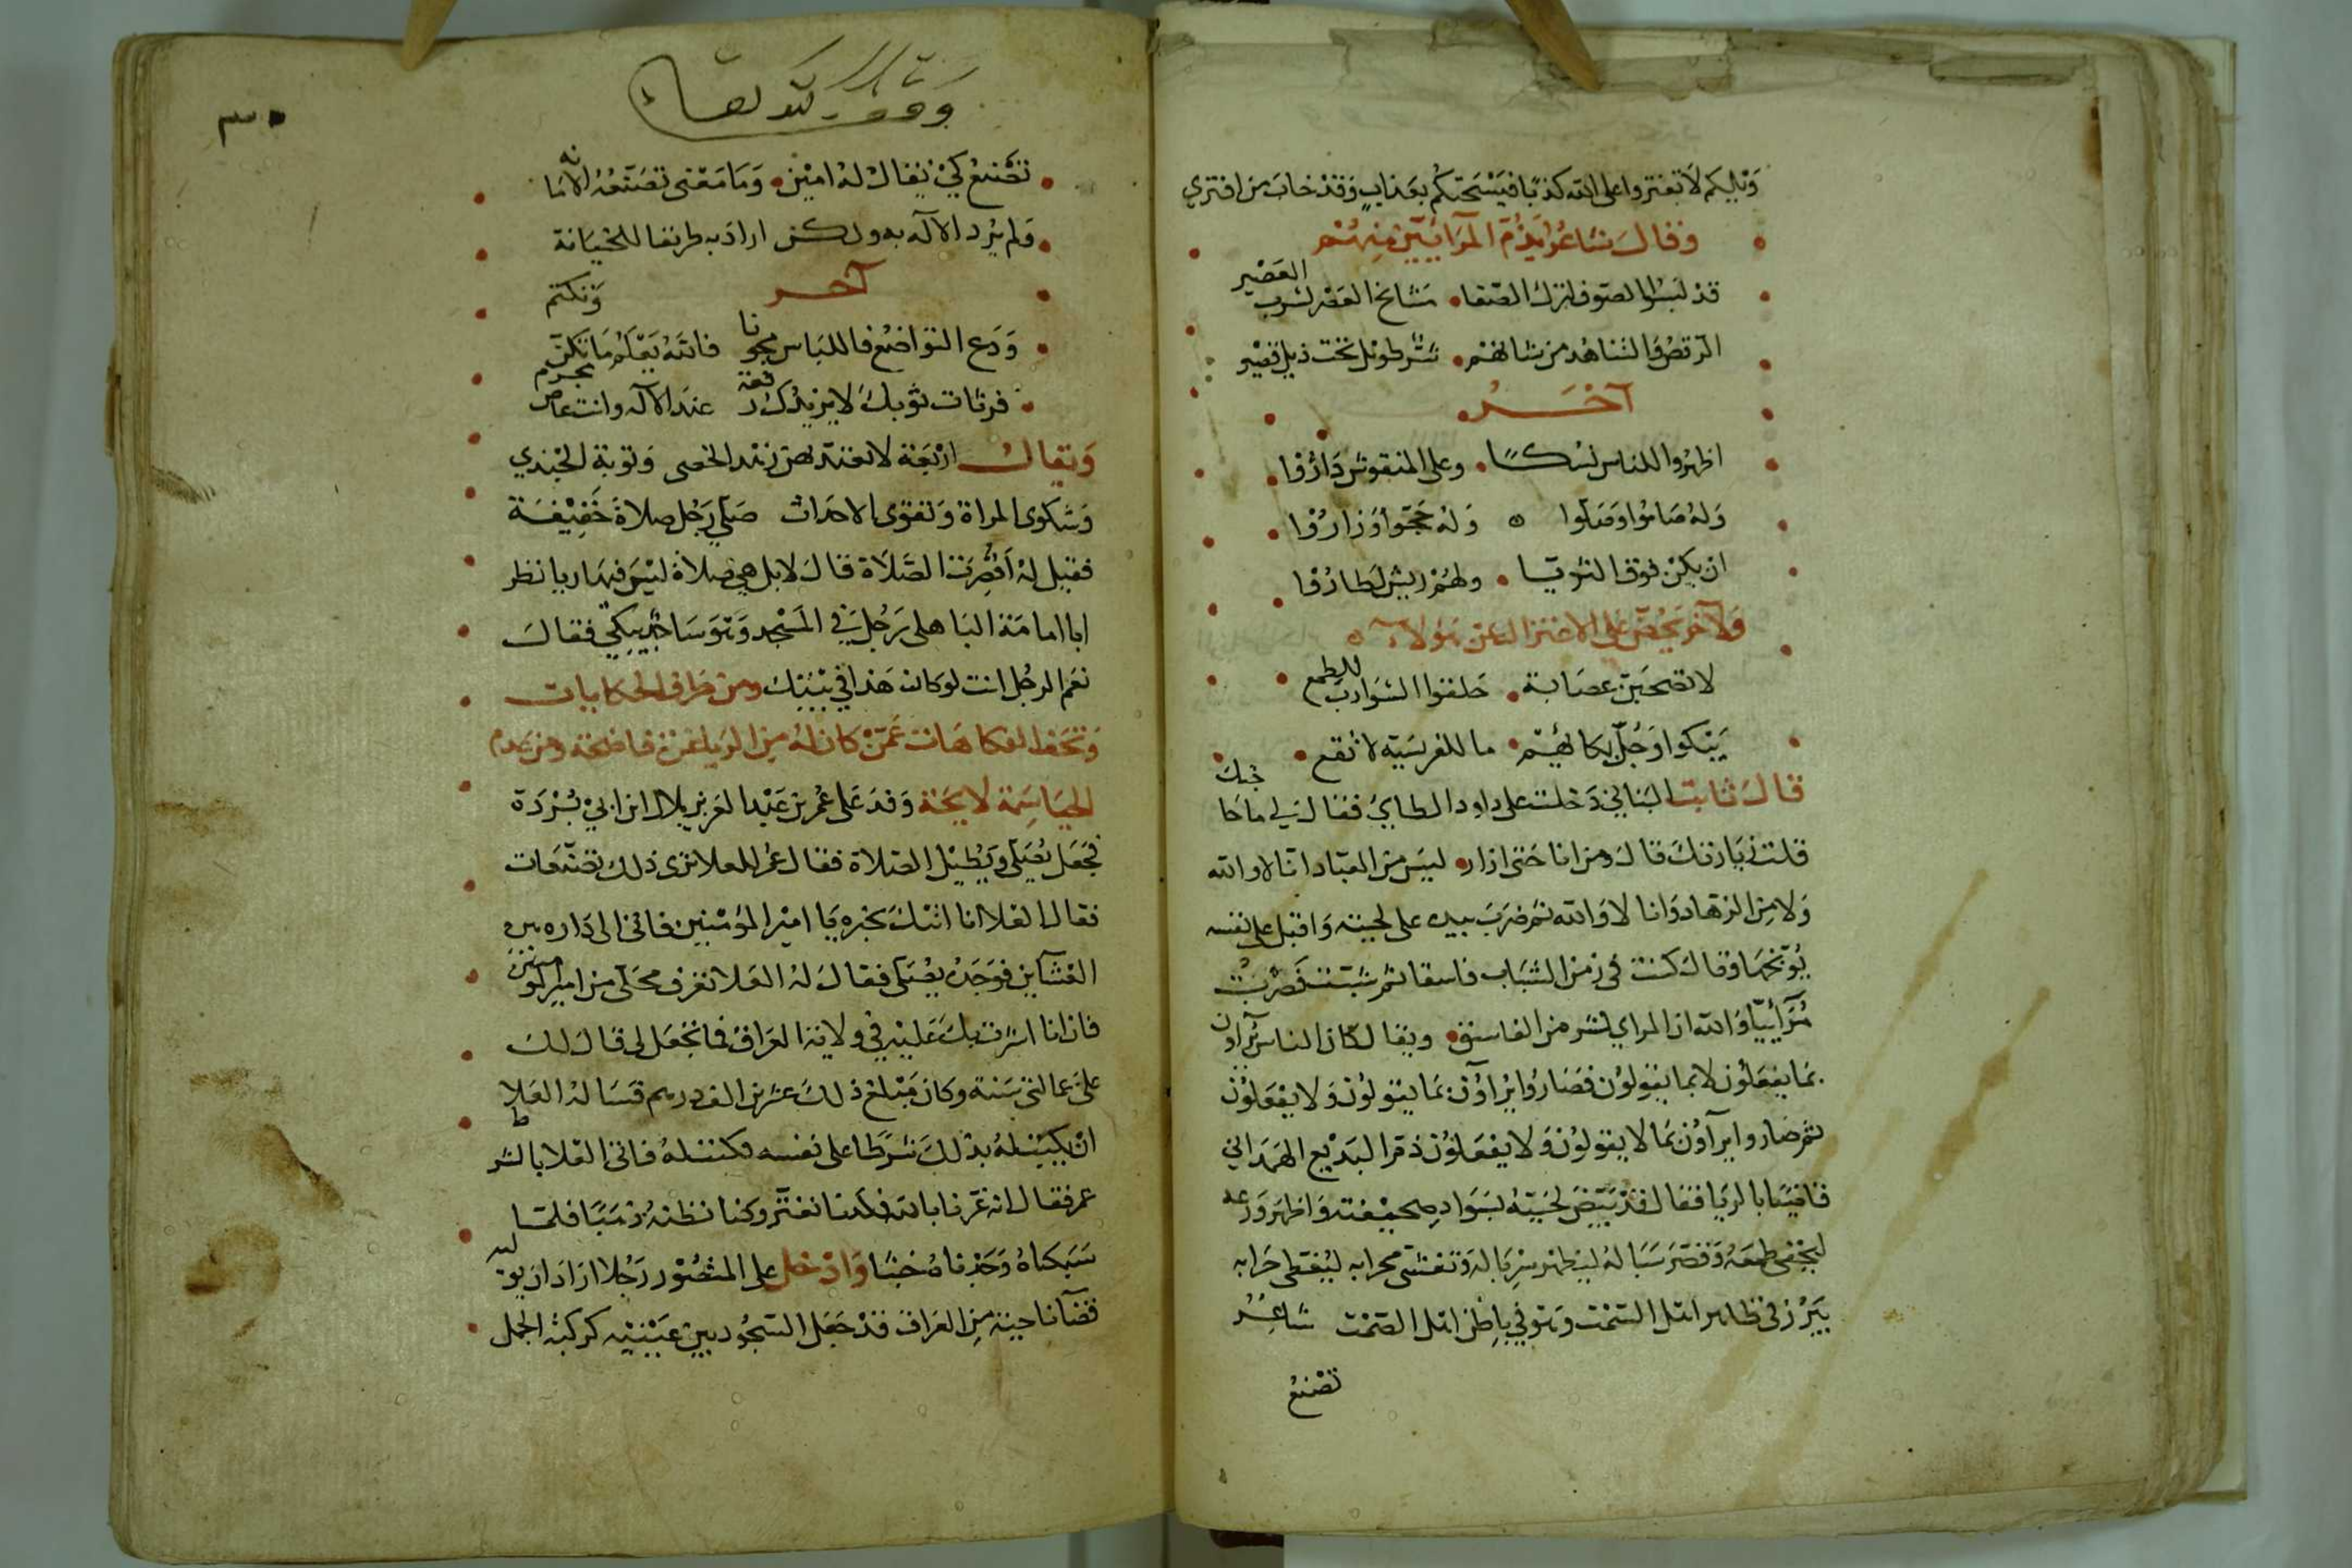 وَيْلكم لا تفتروا على الله كذبًا فيُسْحتكُم بعذابٍ وَقدْ خابَ من افترى
وقال شاعرٌ يذُمّ المرَائيّين منهُم
قدْ لبسُوا الصّوف لترك الصّفا • مشايخ العَصْر لشرب العَصْير
الرّقصُ والشاهد من شانهم • شرٌّ طويل تحت ذيل قصير
آخَــر
اظهرُوا للناس نسْكــًا • وعلى المنقوش دَارُوا
وَلهُ صَامُوا وَصَلّوا ٥ وَلهُ حَجّوا وَزارُوا
ان يكن فوق الثريّا • ولهُمْ ريش لطارُوا
وَلآخر يَحُضّ على الاعتزال عن هؤلاء ٥
لا تصحَبنّ عصَابة • حَلقوا الشوَاربَ للطمع
يَبْكوا وَجُلّ بكائهُم • ما للفريسَة لا تقع •
قالَ ثابت البناني دَخلت على داود الطايي فقالَ لي ما حاجتك
قلت زيَارتكَ قالَ ومن انا حَتى ازار • ليسَ من العبّاد انا لا والله
وَلا من الزهاد وَانا لا وَالله ثم ضرَبَ بيده على لحيته وَاقبل على نفسه
يُوَبّخهَا وَقالَ كنت في زمن الشبَاب فاسقا ثم شبْت فصرتُ
مُرَآئِيًا وَالله ان المراي لشر من الفاسق • ويقال كان الناس يُرآاون
بمَا يفعَلُون لا بما يقولون فصَارُوا يُرآوُن بمَا يقولُون وَلا يفعَلوُن
ثم صاروا يرآوُن بمَا لا يقولوُن وَلا يفعَلوُن ذمّ البَديع الهمَداني
قاضيًا بالريَا فقال قدْ بَيّضَ لحيَتهُ بسَوادِ صحيْفته وَاظهَر وَرعه
ليُخفي طمَعَهُ وَقصَرَ سبَالهُ ليُظهر سرْبَاله وَتغشى محرابه ليُغطى حَرابه
يَبْرُز في ظاهر اهْل السّمْت وَهوَ في بَاطن اهْل الصّمْت شاعِــرُ
تصَنع
وقف لله تعالى
٣٠
تصَّنع كيْ يُقالَ لهُ امين • وَمَا مَعْنى تصَنّعُهُ الامَانه
وَلم يُرد الآله به ولكن ارادَ به طريقا للخيَانة
آخــر
وَدَع التوَاضع فى اللبَاس مجونا فالله يَعْلَمُ مَا تكنّ وَتكتم
فرثات ثوبكَ لا يزيْدُكَ رفعَة عندَ الآله وانت عاص مجرم
وَيقالُ ارْبَعَة لا تعتدّ بهنّ زهْد الخصى وَتوبة الجُندي
وَشكوى المراة وَتقوى الاحدَاث صَلّى رَجُل صلاةً خَفيفــة
فقيل لهُ أقصِرَت الصَّلاة قالَ لا بل هي صَلاة ليْسَ فيهَا ريا نظر
ابا امامَة البَاهلى رَجُل في المسْجد وَهوَ سَاجدٌ يبكي فقالَ
نعْم الرجُل انت لو كان هَذا في بيْتكَ ومن طرَاف الحكايات
وَتحَف الفكاهَات عَمّن كان لهُ من الريا فرّت فاضحَة ومن عدم
الحيَا سمَة لايحَة وَفدَ عَلى عُمر بن عَبْد العَزيز بلال ابن ابي بُرْدَة
فجعَل يُصَلّي وَيُطيْل الصّلاة فقال عمرُ للعلا ترى ذلك تصَنّعا
فقال العَلا انا اتيْكَ بخبره يَا اميْر المؤمنين فاتى الى دَاره بين
العشآين فوجَدهُ يُصَلي فقالَ لهُ العَلا تعرف محَلّى من امير المومنين
فان انا اشرت بكَ عَليْه في ولايَة العرَاق فما تجْعَل لى قالَ لكَ
عليّ عمالتي سَنة وَكان مَبْلغ ذلكَ عشرين الف درهم قسَالهُ العَلا
انْ يَكتبَ لهُ بذلكَ شرْطا على نفسه فكتبَ لهُ فاتى العَلا بالشرط
عمر فقال انه غرّنا بالله فكدْنا نغترّ وكنا نظنهُ ذهَبًا فلمّا
سَبَكناهُ وَجَدْناهُ خبَثًا وَادْخل على المنصُور رَجُلا ارادَ ان يوليه
قضآ ناحيَة من العَرَاق قدْ جَعَل السّجُود بين عَيْنيْه كركبَة الجمل